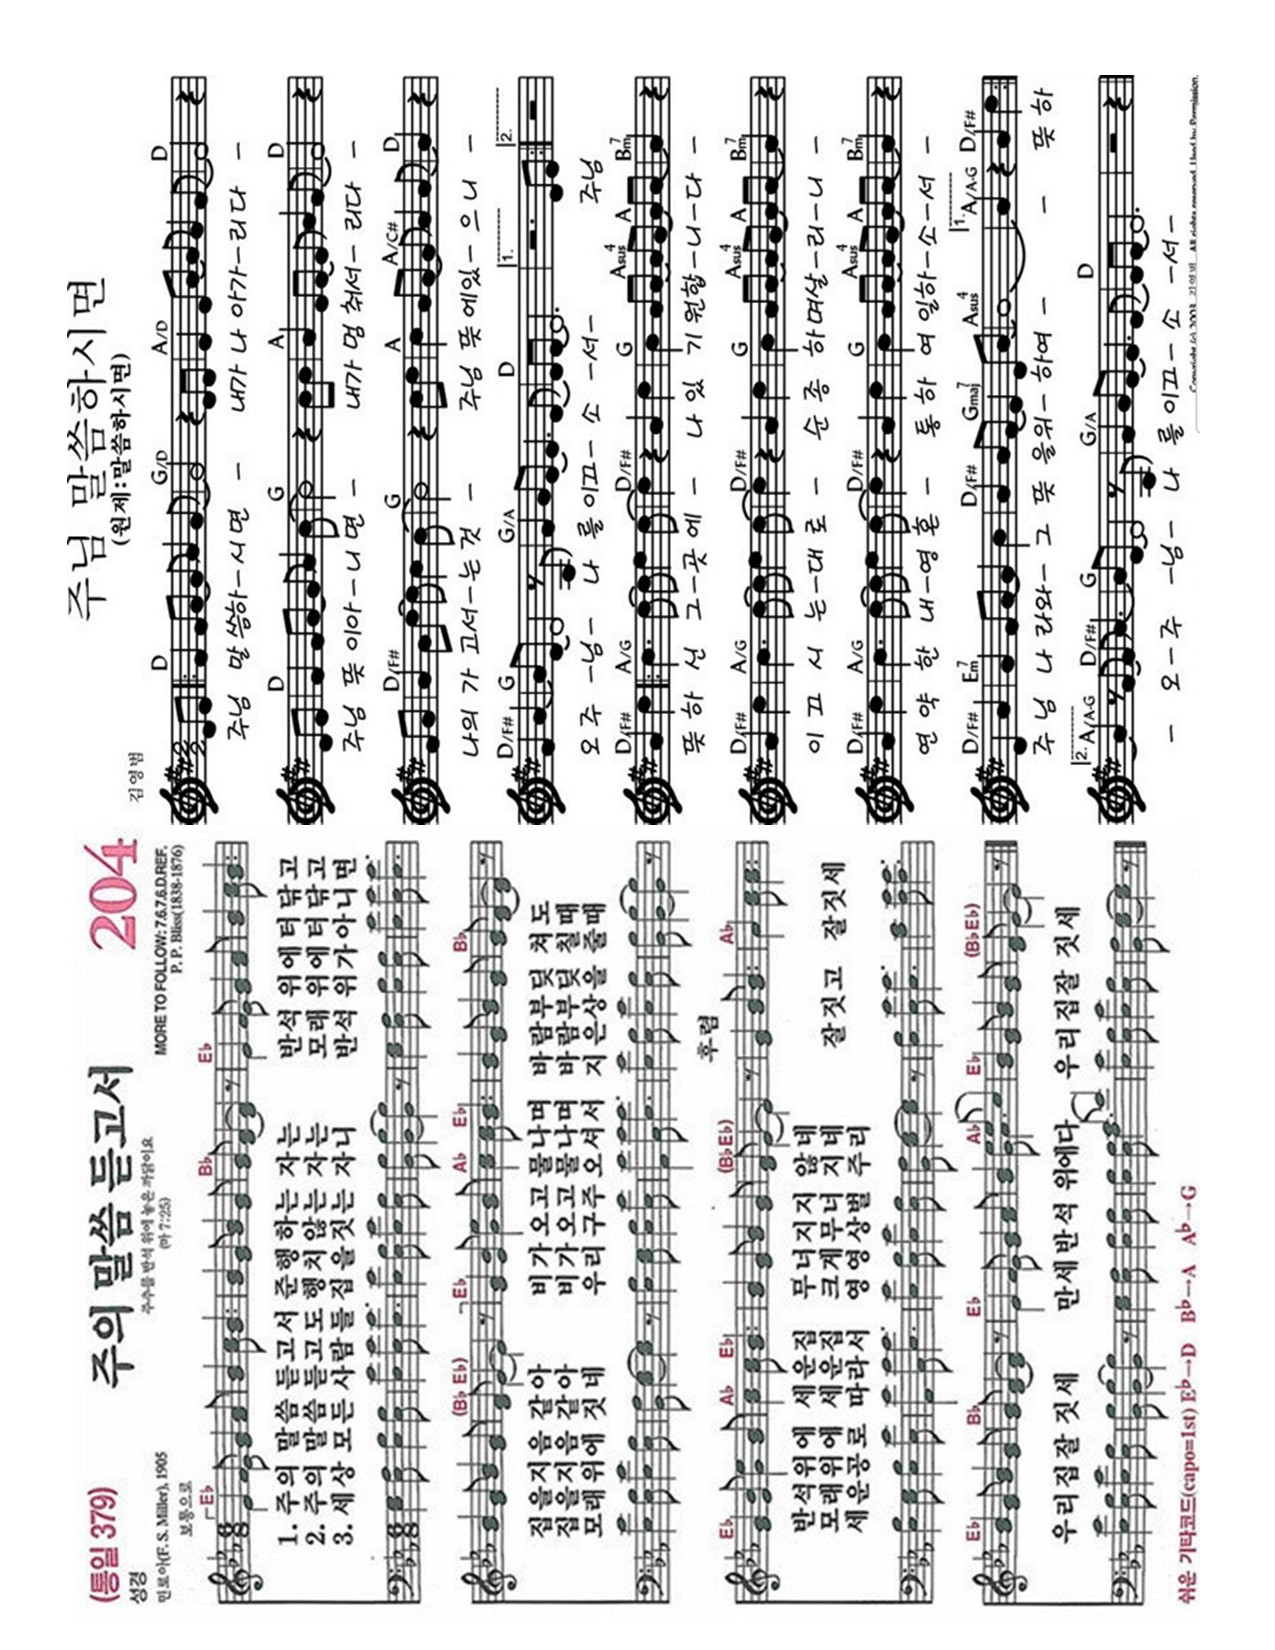 (통일 379) 주의 말씀 듣고서 204
성경 주추를 반석 위에 놓은 까닭이요 MORE TO FOLLOW: 7.6.7.6.D.REF.
민로아(F. S. Miller), 1905 (마 7:25) P. P. Bliss(1838-1876)
보통으로
E♭ B♭ E♭
1. 주의 말씀 듣고서 준행 하는 자는 반석 위에 터 닦고
2. 주의 말씀 듣고도 행치 않는 자는 모래 위에 터 닦고
3. 세상 모든 사람들 집을 짓는 자니 반석 위가 아니면
(B♭ E♭) E♭ A♭ E♭ B♭
집을지음 같아 비가 오고 물나며 바람부딪 쳐도
집을지음 같아 비가 오고 물나며 바람부딪 칠때
모래위에 짓네 우리 구주 오셔서 지은상을 줄때
후렴
E♭ A♭ E♭ (B♭ E♭) A♭
반석위에 세운집 무너지지 않네 잘짓고 잘짓세
모래위에 세운집 크게무너 지네
세운공로 따라서 영영상벌 주리
E♭ B♭ E♭ A♭ E♭ (B♭ E♭)
우리집잘 짓세 만세반석 위에다 우리집잘 짓세
쉬운 기타코드(capo=1st) E♭→D B♭→A A♭→G
주님 말씀하시면
(원제:말씀하시면)
김영범
D G/D A/D D
주님 말씀하-시면 - 내가 나 아가-리다 -
D G A D
주님 뜻 이아-니면 - 내가 멈 춰서- 리다 -
D/F# G A A/C# D
나의 가 고서-는것 - 주님 뜻 에있- 으니 -
D/F# G G/A D 1. 2.
오 주 -님- 나 를 이끄- 소 -서- 주님
D/F# A/G D/F# G Asus4 A Bm7
뜻 하 신 그-곳 에 - 나 있 기 원합-니-다 -
D/F# A/G D/F# G Asus4 A Bm7
이 끄 시 는-대 로 - 순 종 하 며살-리-니 -
D/F# A/G D/F# G Asus4 A Bm7
연 약 한 내-영 혼 - 통 하 여 일하-소-서 -
D/F# Em7 D/F# Gmaj7 Asus4 1. A/A-G D/F#
주 님 나 라와- 그 뜻 을위- 하여 - - 뜻 하
2. A/A-G D/F# G G/A D
- 오 - 주 -님- 나 를 이끄- 소 -서-
Copyright (c) 2003. 김영범. All rights reserved. Used by Permission.